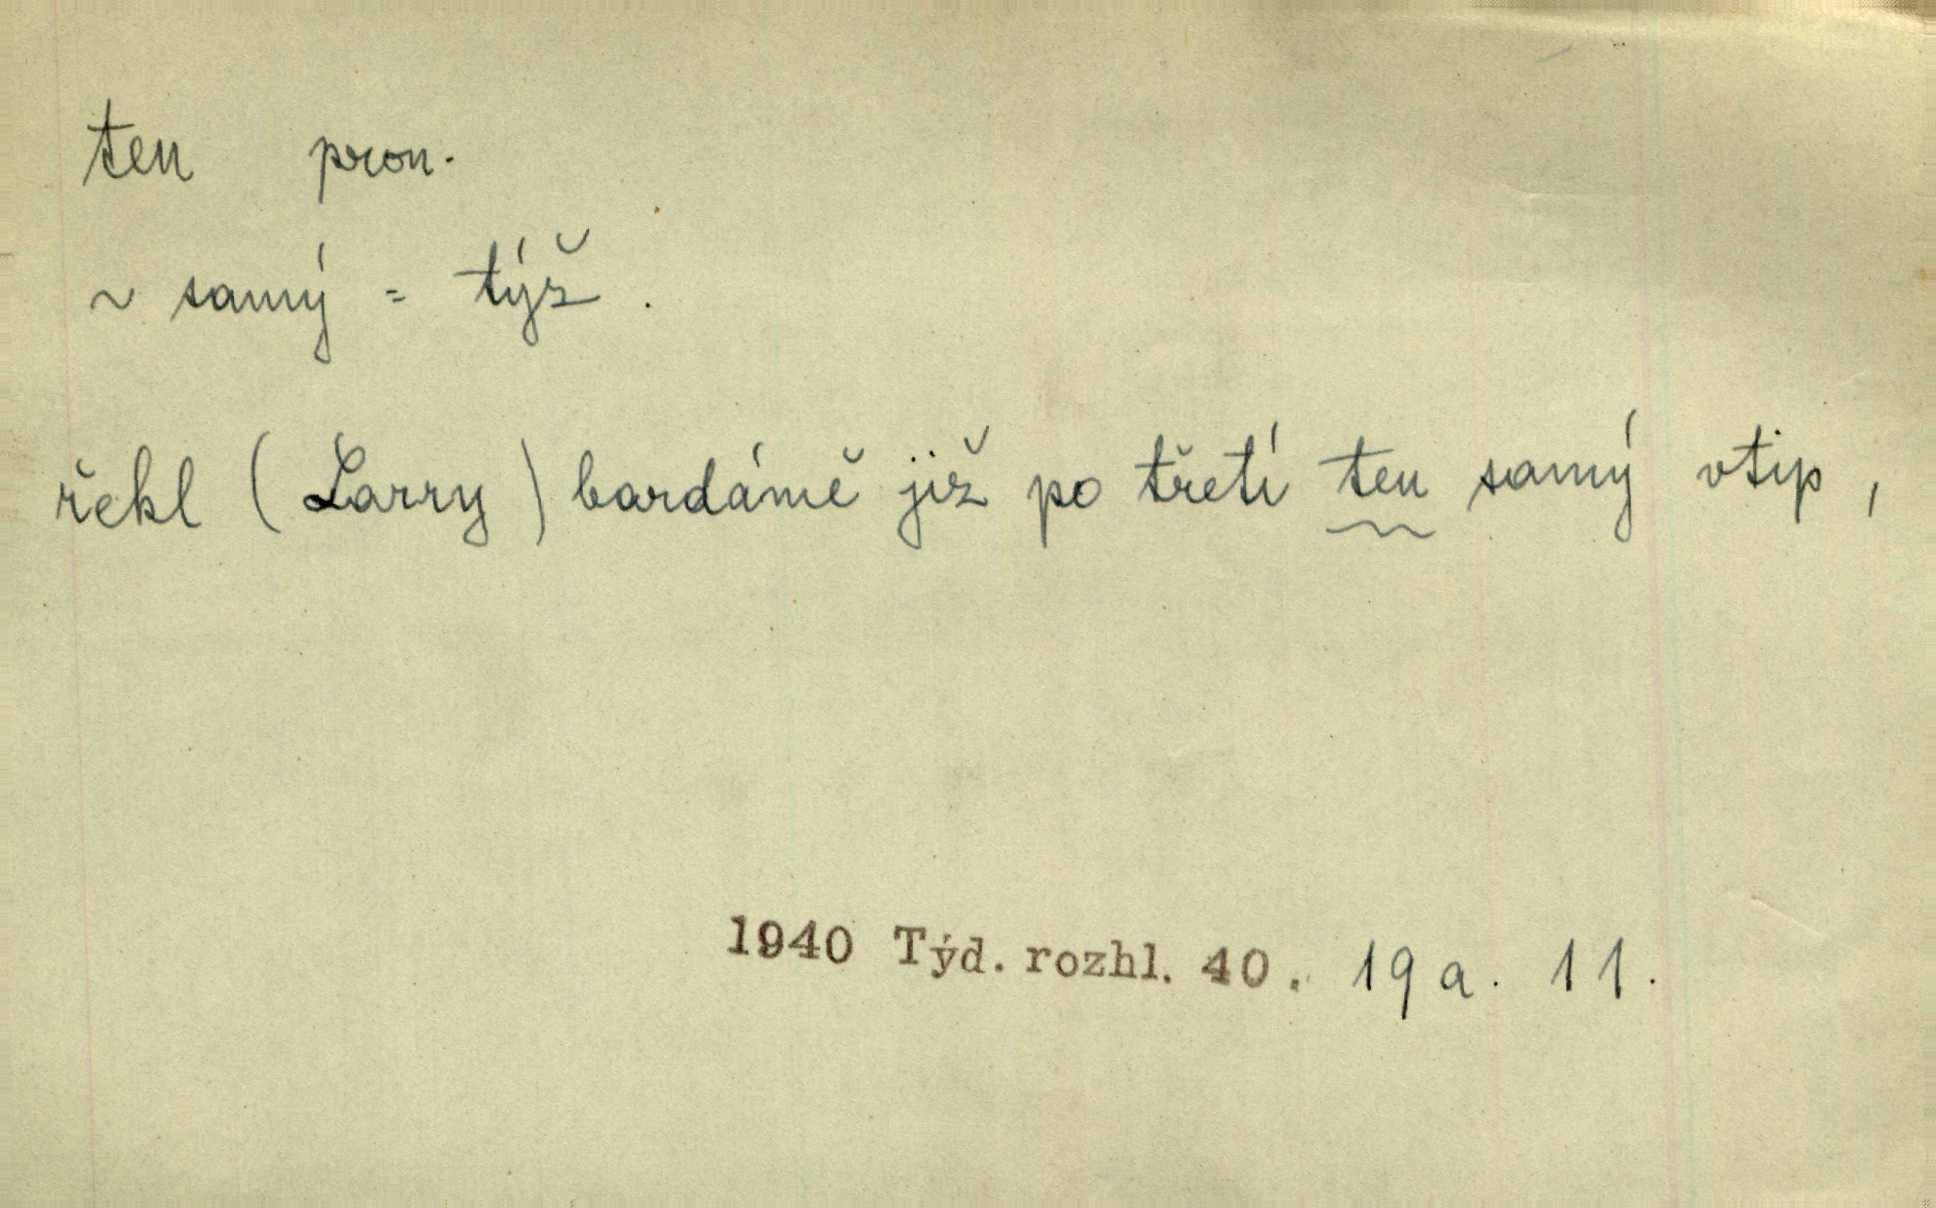 ten pron.
~ samý = týž.
řekl (Larry) bardámě již po třetí ten samý vtip,
1940 Týd. rozhl. 40. 19a. 11.